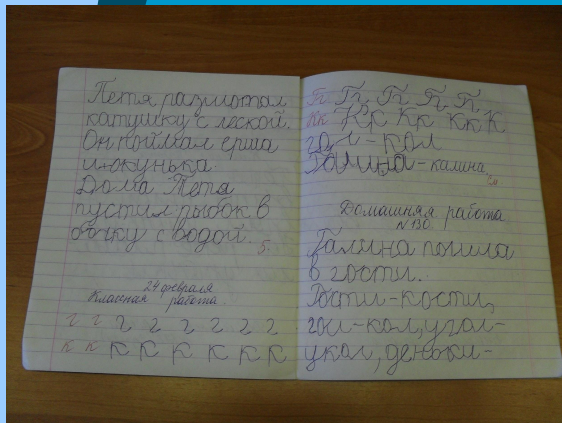 Петя размотал
катушку с леской.
Он поймал ерша
и окунька.
Дома Петя
пустил рыбок в
бочку с водой.
5.
24 февраля
Классная работа.
г г г г г г г г
к к к к к к к к
Гг Гг Гг Гг Гг
Кк Кк Кк Кк К
гол - кол
Галина - калина
См
Домашняя работа
N 130.
Галина пошла
в гости.
Гости - кости,
гол - кол, угол -
укол, деньки -